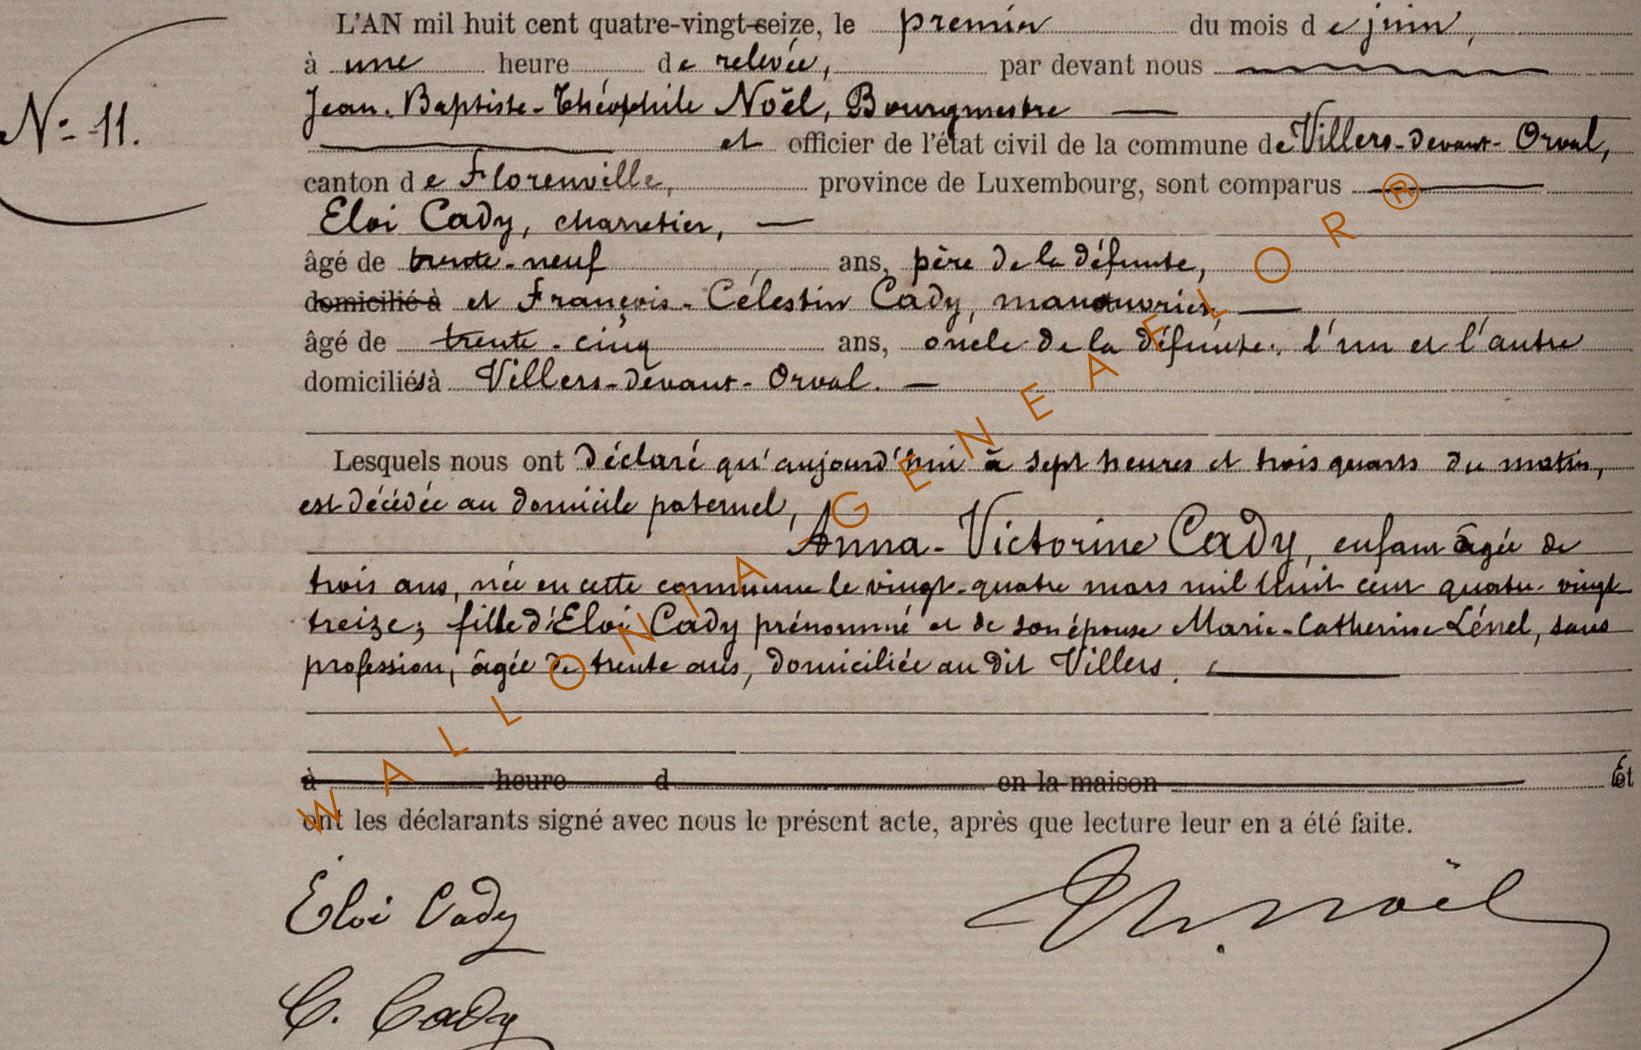 L'AN mil huit cent quatre-vingt-seize, le premier du mois de juin,
à une heure de relevée, par devant nous
Nº 11.
Jean-Baptiste-Théophile Noël, Bourgmestre
et officier de l'état civil de la commune de Villers-devant-Orval,
canton de Florenville, province de Luxembourg, sont comparus
Eloi Cady, charretier,
âgé de trente-neuf ans, père de la défunte,
domicilié à et François-Célestin Cady, manouvrier
âgé de trente-cinq ans, oncle de la défunte, l'un et l'autre
domiciliés à Villers-devant-Orval.
Lesquels nous ont déclaré qu'aujourd'hui à sept heures et trois quarts du matin,
est décédée au domicile paternel,
Anna-Victorine Cady, enfant âgée de
trois ans, née en cette commune le vingt-quatre mars mil huit cent quatre-vingt
treize; fille d'Eloi Cady prénommé et de son épouse Marie-Catherine, sans
profession, âgée de trente ans, domiciliée au dit Villers.
à heure d en la maison Et
ont les déclarants signé avec nous le présent acte, après que lecture leur en a été faite.
Eloi Cady
Th. Noël
C. Cady
WALLONIA GENEAFLOR®